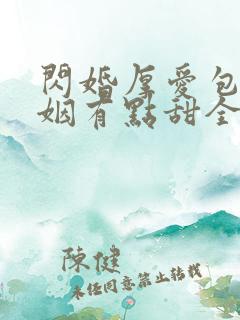 閃婚厚愛包
姻有點甜全
陳健
未經同意禁止轉載